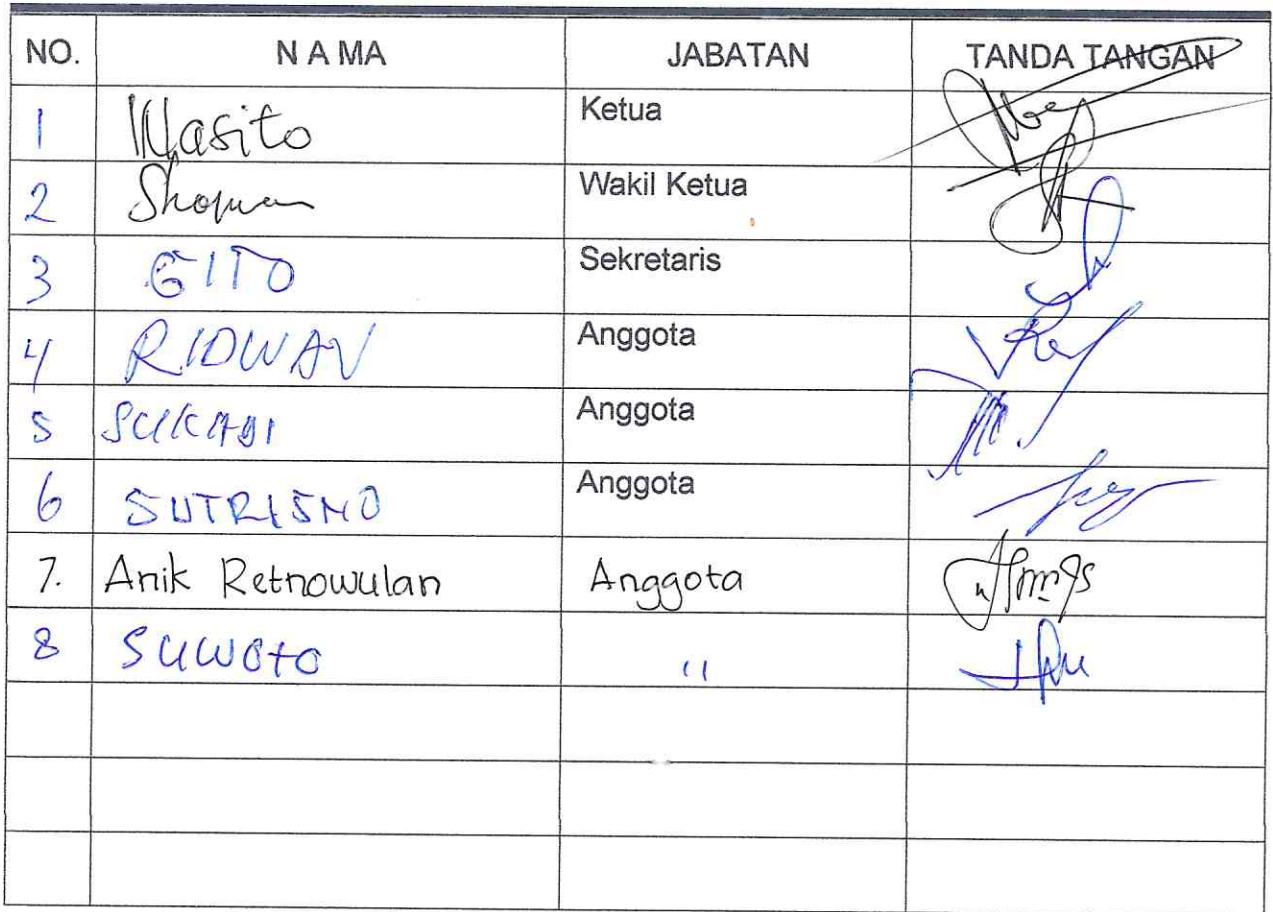 NO. N A MA JABATAN TANDA TANGAN
1 Wasito Ketua
2 Wakil Ketua
3 GITO Sekretaris
4 RIDWAN Anggota
5 SUKADI Anggota
6 SUTRISNO Anggota
7. Anik Retnowulan Anggota
8 SUWOTO "